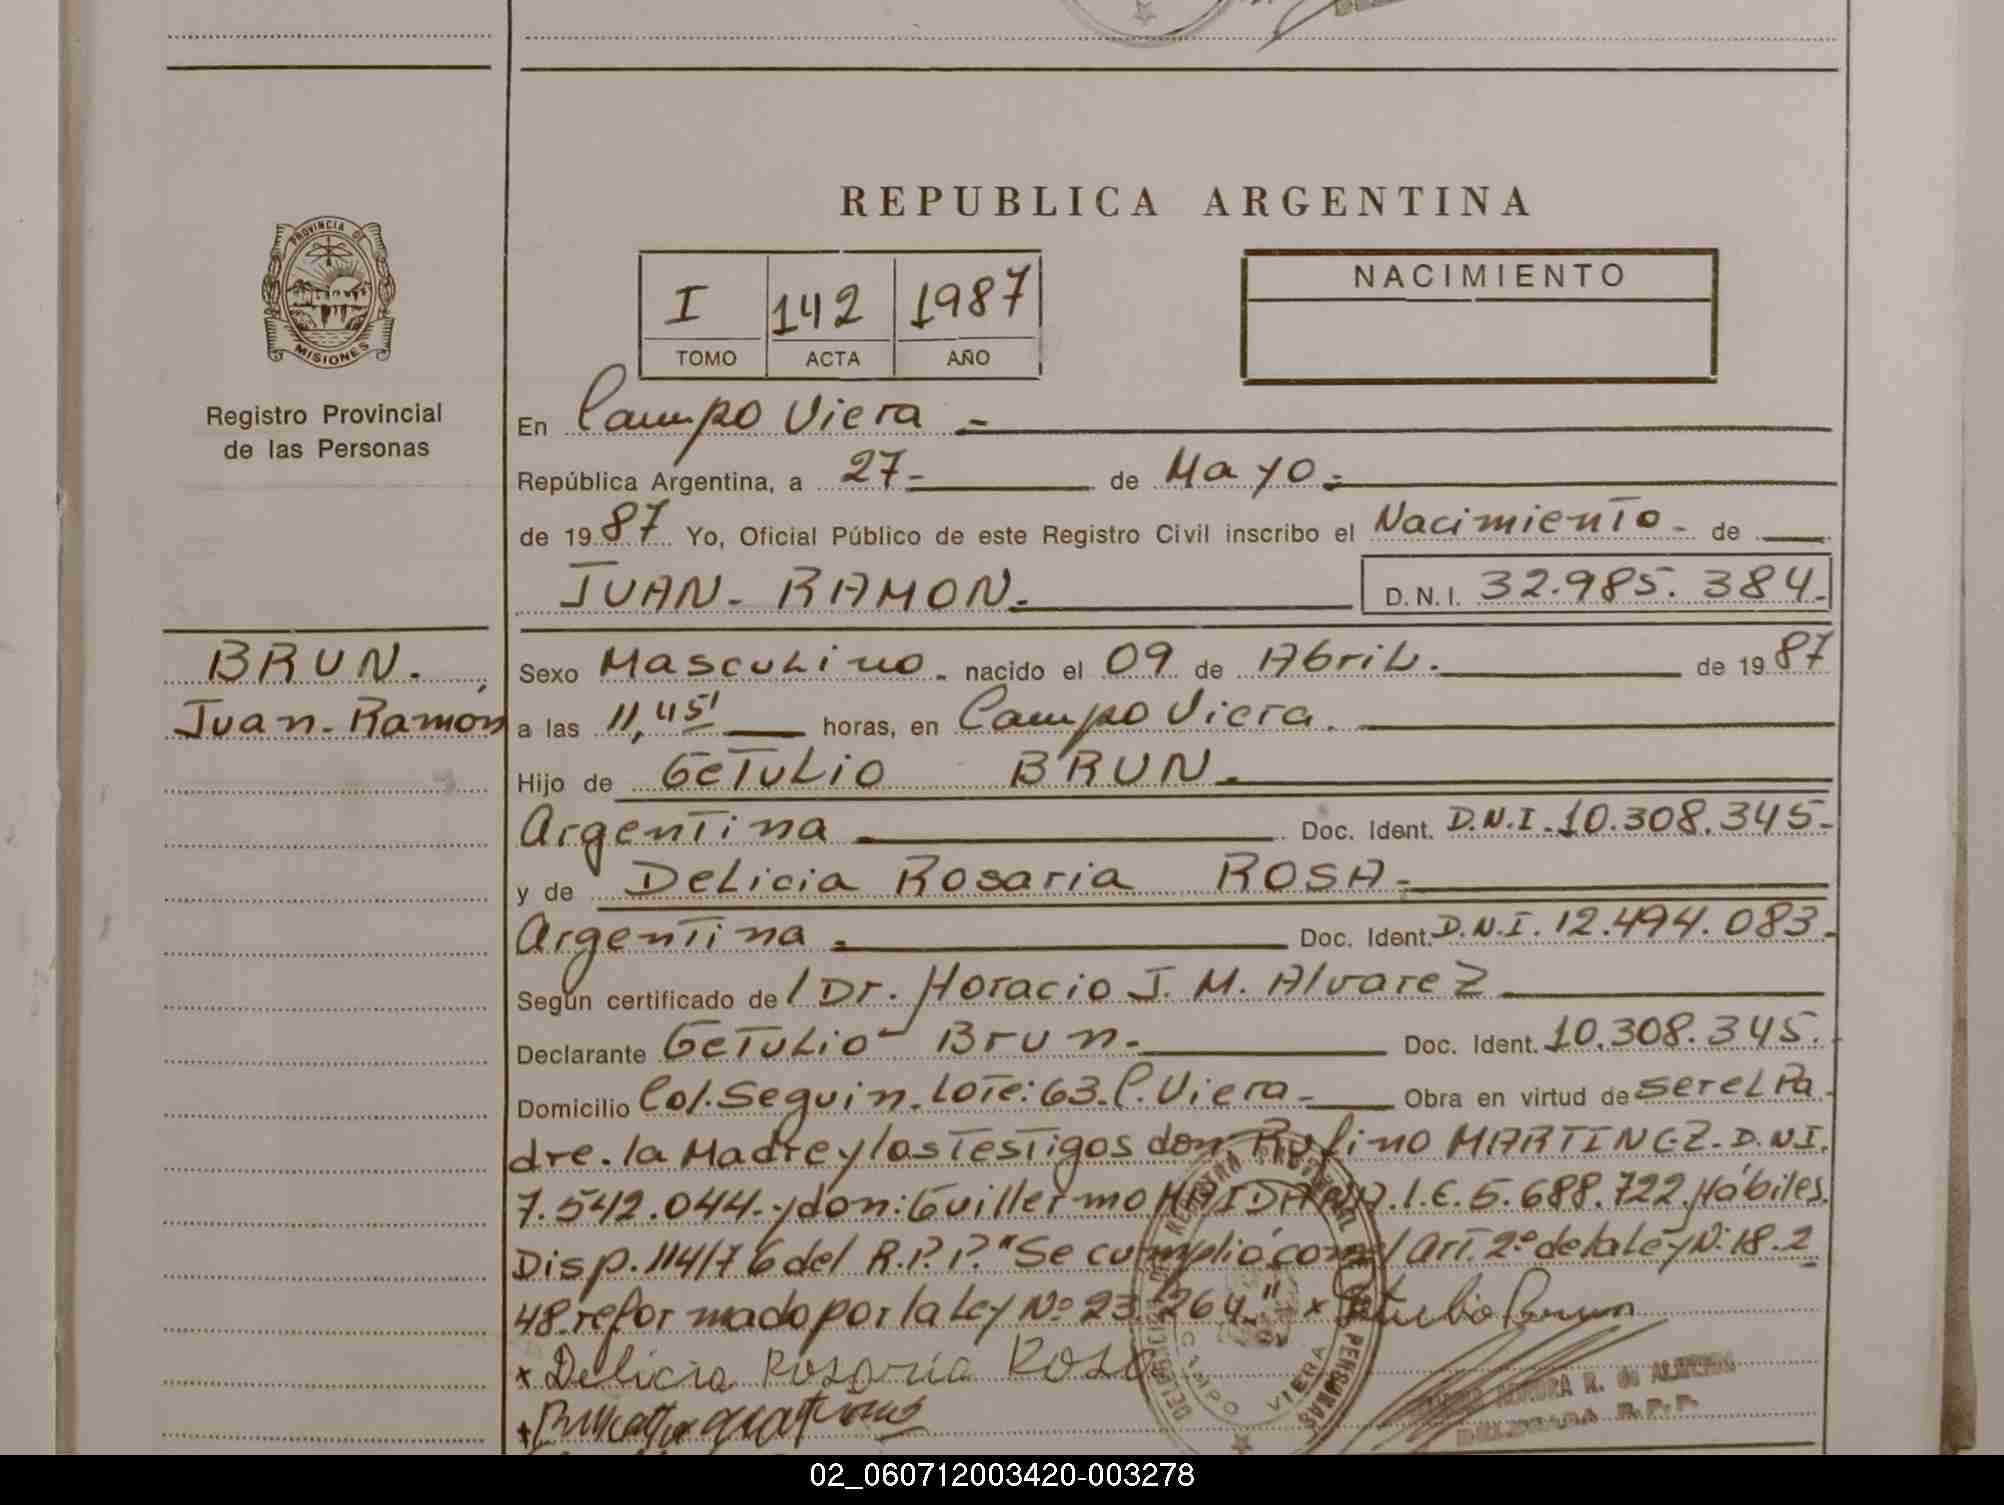 REPUBLICA ARGENTINA
PROVINCIA DE
MISIONES
Registro Provincial
de las Personas
I 142 1987
TOMO ACTA AÑO
NACIMIENTO
En Campo Viera.-
República Argentina, a 27- de Mayo.-
de 1987 Yo, Oficial Público de este Registro Civil inscribo el Nacimiento- de
JUAN- RAMON.- D.N.I. 32.985.384-
BRUN.,
Juan-Ramón
Sexo Masculino. nacido el 09 de Abril. de 1987
a las 11,45' horas, en Campo Viera.
Hijo de GETULIO BRUN.
Argentina. Doc. Ident. D.N.I.10.308.345-
y de Delicia Rosaria ROSA-
Argentina. Doc. Ident. D.N.I.12.494.083.
Según certificado de l Dr. Horacio J. M. Alvarez
Declarante GETULIO Brun. Doc. Ident. 10.308.345.
Domicilio Col.Seguin.Lote:63.C.Viera- Obra en virtud de ser el Pa
dre.la Madre y los Testigos don Rufino MARTINEZ.D.N.I.
7.542.044-y don:Guillermo 5.688.722.Hábiles.
Disp.114/76 del R.P.P."Se cumplió con el Art.2º de la Ley Nº18.2
48.reformado por la Ley Nº23.264" x Getulio Brun
x Delicia Rosaria Rosa
CAMPO VIERA
R. de ALMEIDA
DELEGADA R.P.P.
02_060712003420-003278